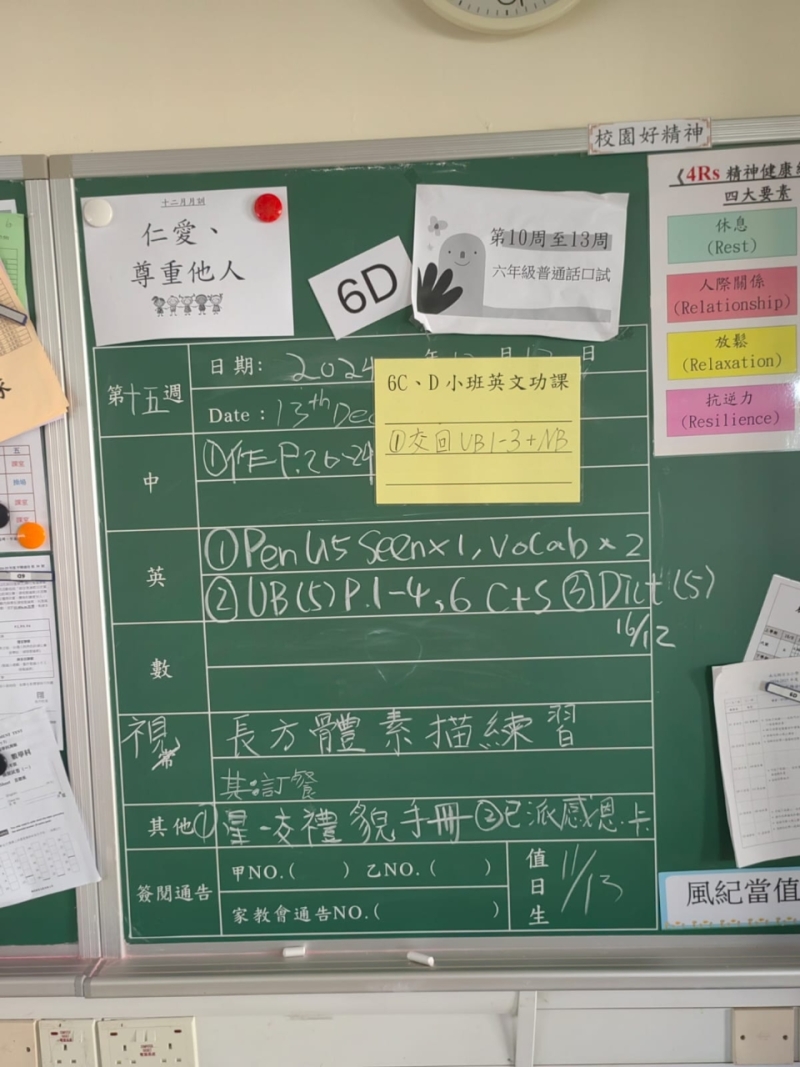 校園好精神
十二月月訓
仁愛、
尊重他人
6D
第10周至13周
六年級普通話口試
《4Rs 精神健康
四大要素
休息
(Rest)
人際關係
(Relationship)
放鬆
(Relaxation)
抗逆力
(Resilience)
第十五週
日期: 2024 日
Date : 13th Dec
6C、D小班英文功課
①交回 UB1-3+NB
中
①作P.20-24
英
①Pen U5 Seen×1, Vocab×2
②UB(5) P.1-4,6 C+S ③Dict(5)
16/12
數
視
常
長方體素描練習
其:訂餐
其他
①星-交禮貌手冊 ②已派感恩卡
簽閱通告
甲NO.( ) 乙NO.( )
家教會通告NO.( )
值日生
11/13
風紀當值